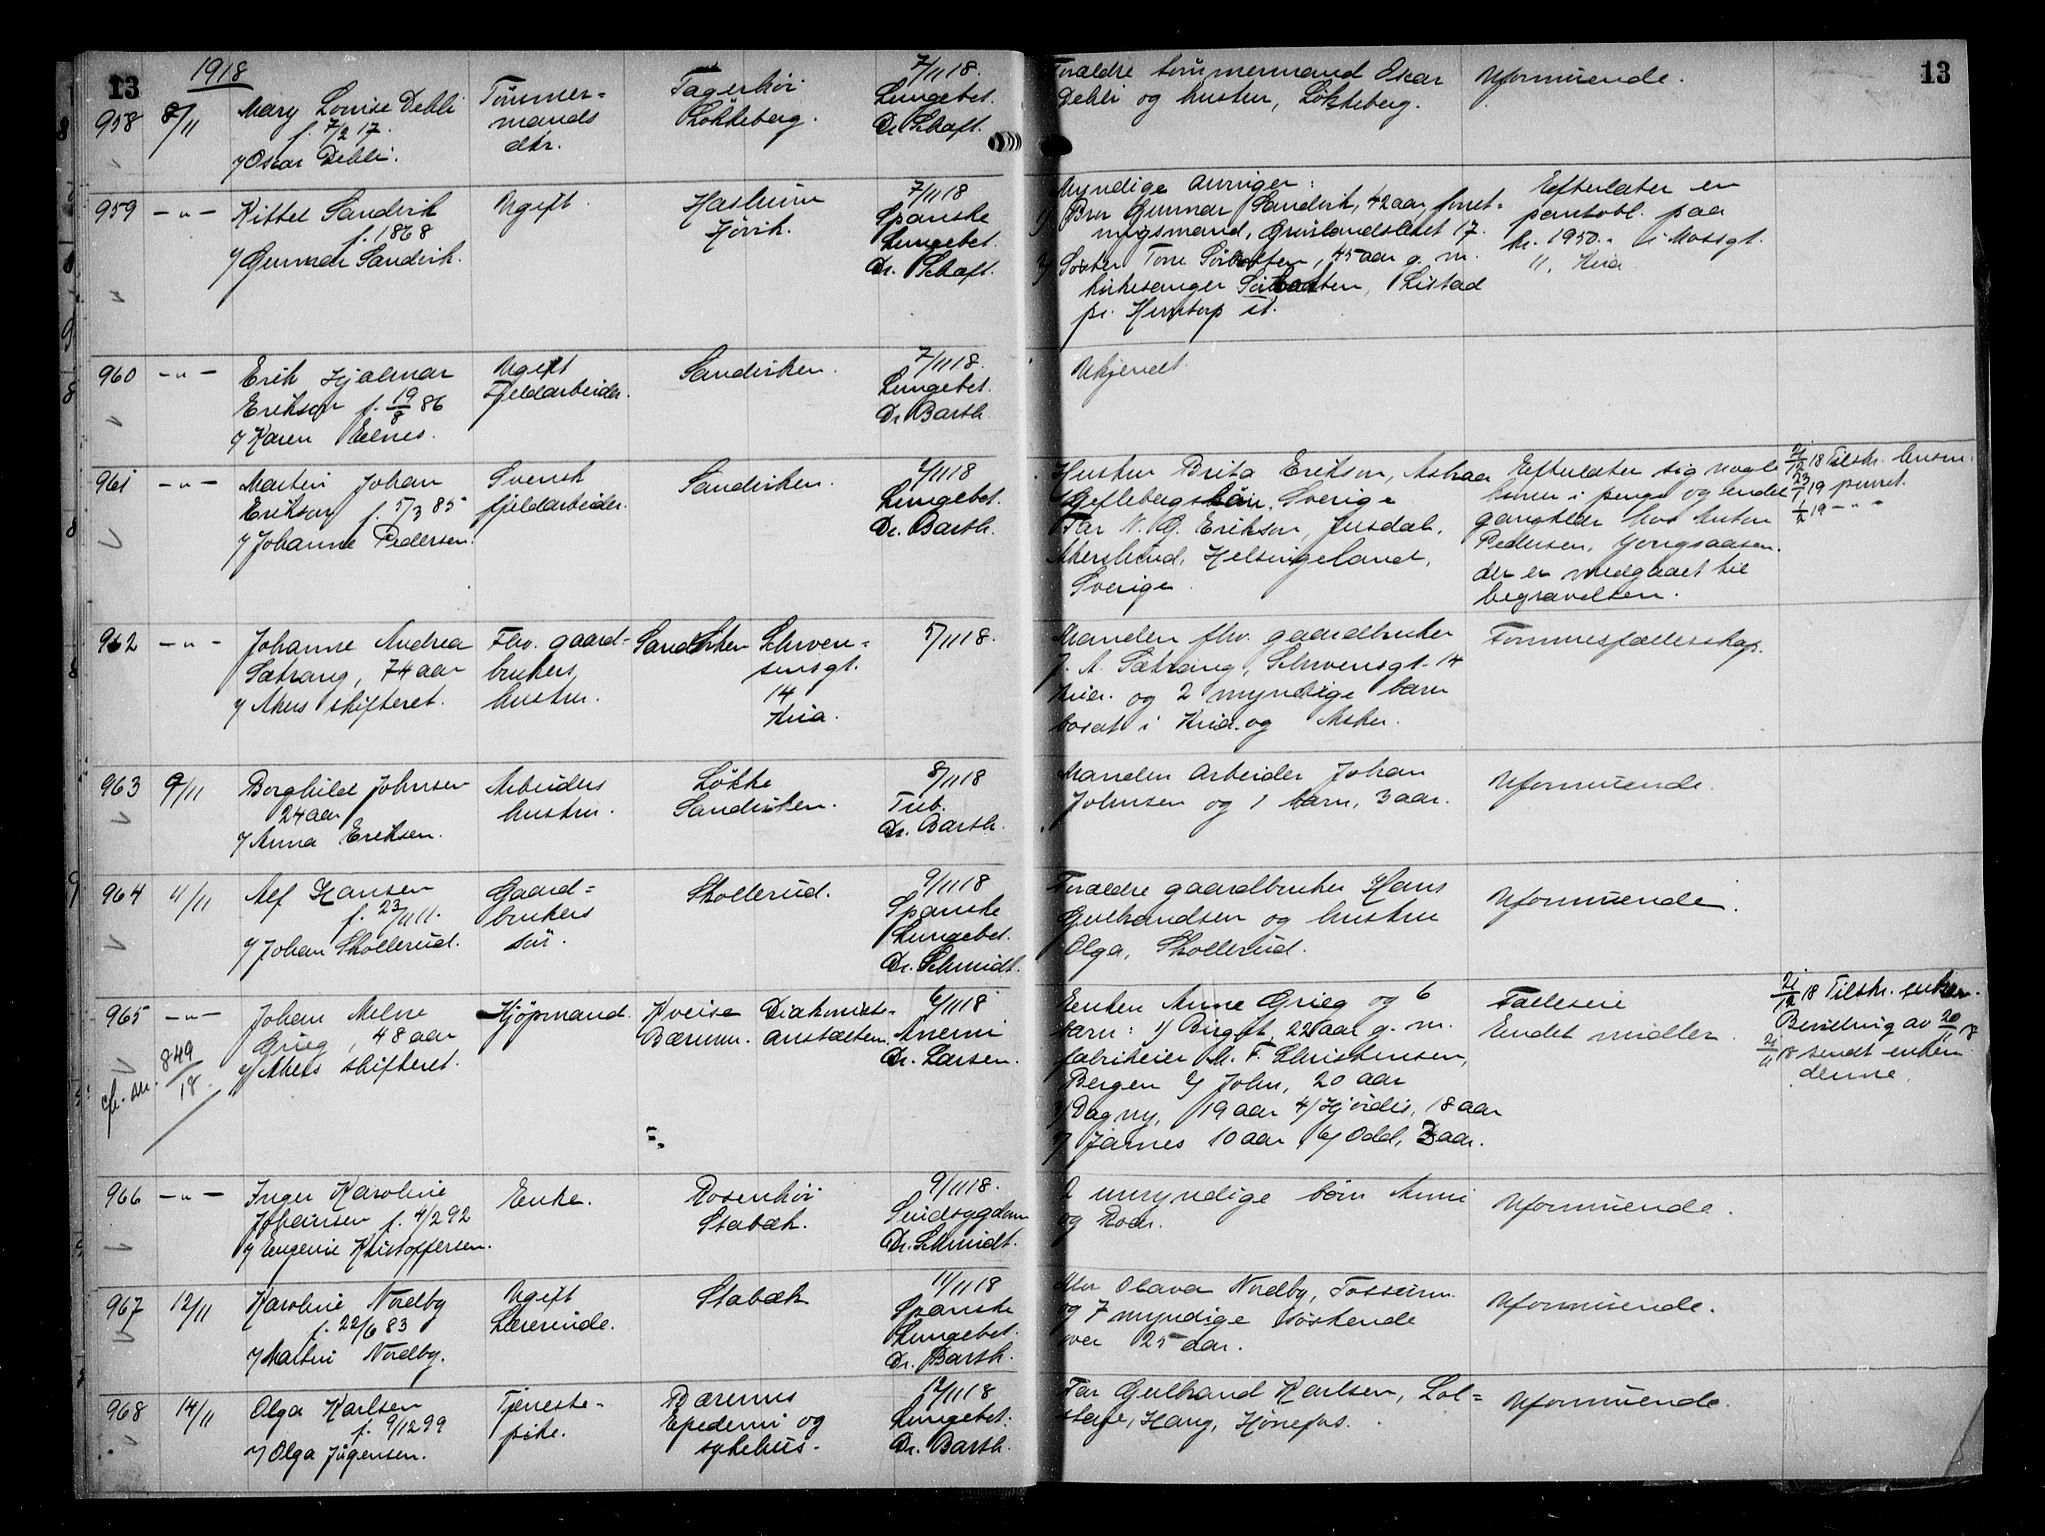 13
1918
958
8/11
Mary Louise Dehli
f. 7/2 17.
v/ Oscar Dehli.
Tømmer=
mands
dtr.
Fagerhøi
Løkkeberg.
7/11 18.
Lungebet.
Dr. Schaft.
Forældre tømmermand Oscar
Dehli og hustru, Løkkeberg.
Uformuende.
13
959
—„—
Kittel Sandvik
f. 1868
v/ Gunnar Sandvik.
Ugift.
Haslum
7/11 18
Spanske
Lungebet.
Dr. Schaft.
Myndige arvinger:
1/ Bror Gunnar Sandvik, 42 aar, forret=
ningsmand, Grünlandsletet 17.
2/ Søster Tone 45 aar g. m.
kirkesanger Listad
pr. Hundorp st.
Efterlater en
pantobl. paa
kr. 1950.- i Mossgt.
11, Kria
960
—„—
Erik Hjalmar
Erikson f. 19/8 86
v/ Karen Eilnes.
Ugift
Fjeldarbeider.
Sandviken.
7/11 18.
Lungebet.
Dr. Barth
Ukjendt
961
—„—
Martin Johan
Erikson f. 5/3 85
v/ Johanne Pedersen.
Svensk
fjeldarbeider.
Sandviken.
7/11 18
Lungebet.
Dr. Barth.
Hustru Brita Erikson,
Gefleborgslän, Sverige
Far N. G. Erikson, Jusdal,
Helsingeland,
Sverige
Efterlater sig nogle
kroner i penge og endel
gangklær hos Anton
Pedersen, Yongsaasen.
der er medgaaet til
begravelsen.
21/12 18 Tilskr. lensm.
23/1 19 purret.
1/2 19 —„—
962
—„—
Johanne Andrea
Sætrang, 74 aar
v/ Akers skifteret.
Fhv. gaard-
brukers
hustru.
Sandviken
Schwen=
sensgt.
14
Kria.
5/11 18.
Manden fhv. gaardbruker
J. A. Sætrang, Schwensgt. 14
Kria. og 2 myndige barn
bosat i Kria. og Asker.
Formuesfællesskap.
963
9/11
Borghild Johnsen
24 aar
v/ Anna Eriksen.
Arbeiders
hustru.
Løkke
Sandviken.
8/11 18
Tub.
Dr. Barth.
Manden Arbeider Johan
Johnsen og 1 barn, 3 aar.
Uformuende.
964
11/11
Alf Hansen
f. 23/11 11.
v/ Johan Skollerud.
Gaard=
brukers
søn.
Skollerud.
9/11 18
Spanske
Lungebet.
Dr. Schmidt.
Forældre gaardbruker Hans
Gulbrandsen og hustru
Olga, Skollerud.
Uformuende.
965
—„—
cfr. nr. 849/18
Johan Milne
Grieg, 48 aar
v/ Akers skifteret.
Kjøpmand.
Kveise
Bærum.
Diakonists=
anstalten.
6/11 18
Anemi
Dr. Larsen.
Enken Anne Grieg og 6
barn: 1/ Birgit, 22 aar g. m.
fabrikeier M. F. Christensen,
Bergen 2/ John, 20 aar
3/ Dagny, 19 aar 4/ Hjørdis, 18 aar
5/ James 10 aar 6/ Odd, 3 aar.
Fælleseie
Endel midler.
21/12 18 Tilskr. enken.
Bevilling av 20/11
21/11 18 sendt enken
denne.
966
—„—
Inger Karoline
Johansen f. 4/2 92
v/ Eugenie Kristoffersen.
Enke.
Rosenhøi
Stabæk.
9/11 18.
Sindsygdom
Dr. Schmidt.
2 umyndige børn Anni
og Roar.
Uformuende.
967
12/11
Karoline Nordby
f. 22/6 83
v/ Martin Nordby.
Ugift
Lærerinde.
Stabæk
11/11 18
Spanske
Lungebet.
Dr. Barth.
Mor Olava Nordby, Fossum
og 7 myndige søskende
over 25 aar.
Uformuende.
968
14/11
Olga Karlsen
f. 9/12 99
v/ Olga Jørgensen.
Tjeneste-
pike.
Bærums
Epedemi og
sykehus.
12/11 18
Lungebet.
Dr. Barth.
Far Gulbrand Karlsen,
Haug, Hønefos.
Uformuende.